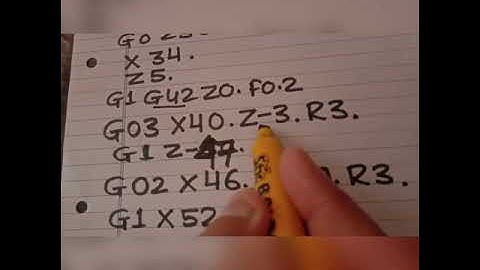 G0
X34.
Z5.
G1 G42 Z0. F0.2
G03 X40. Z-3. R3.
G1 Z-47.
G02 X46. R3.
G1 X52